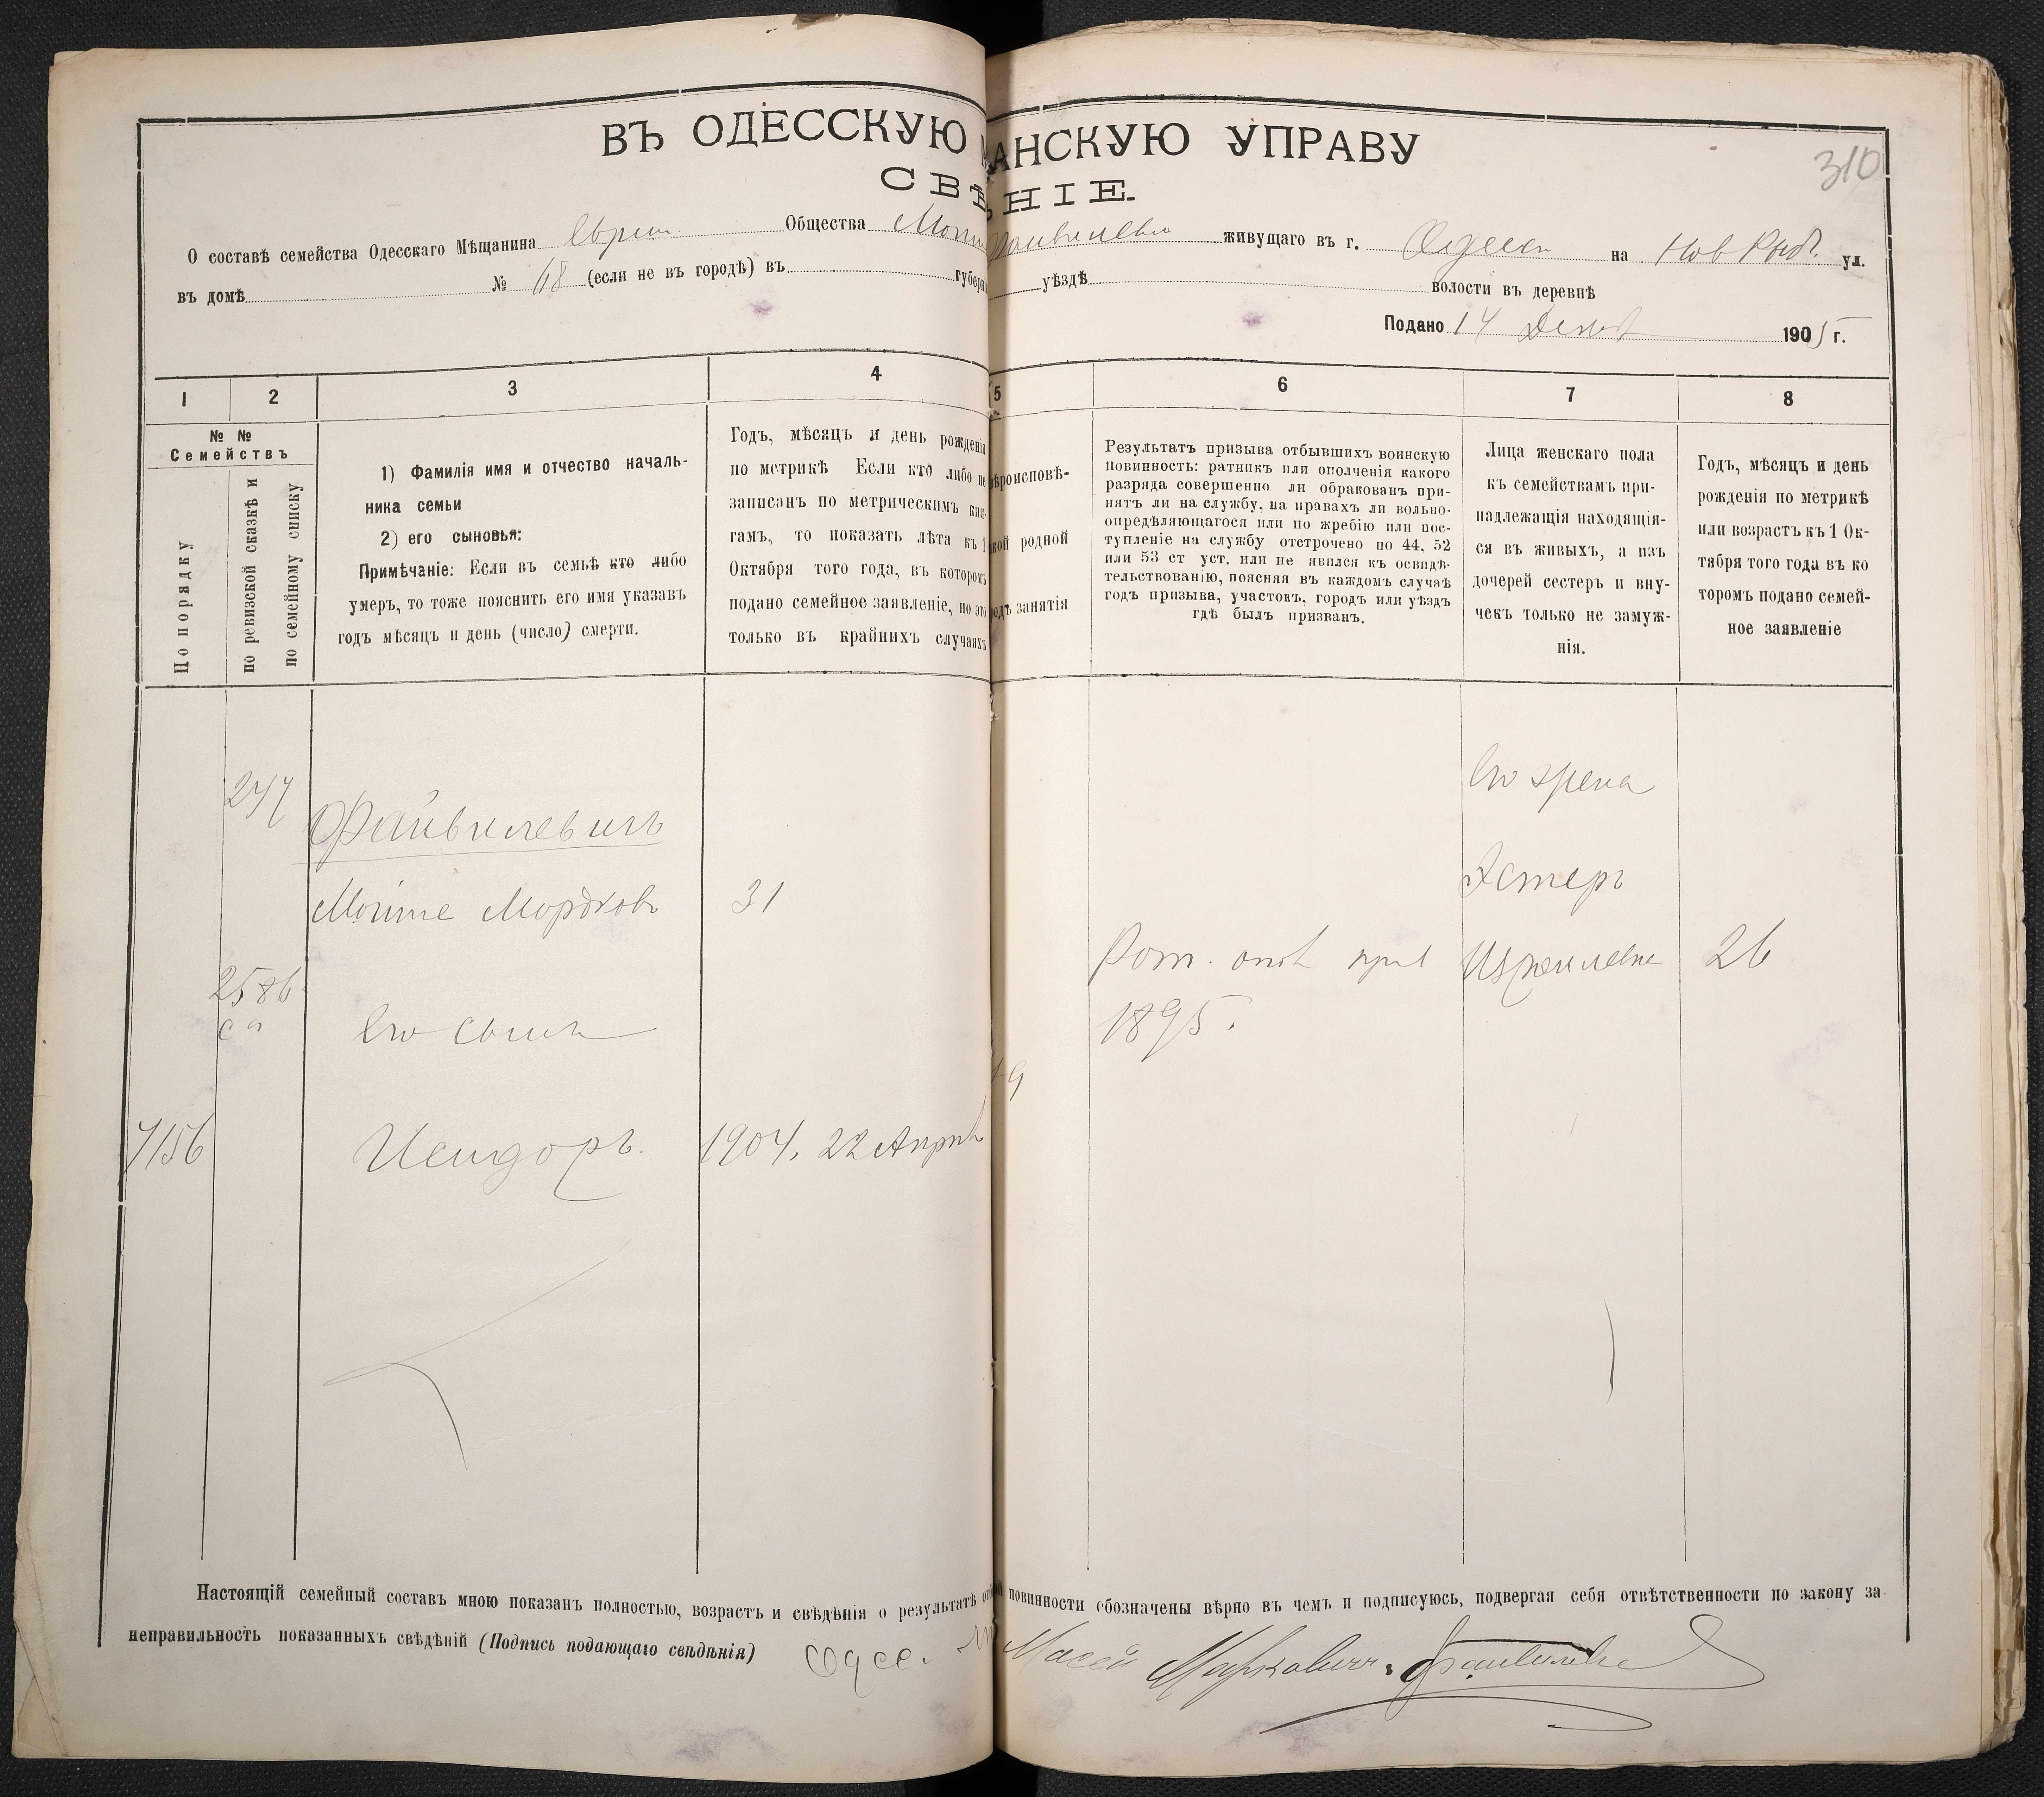 ВЪ ОДЕССКУЮ АНСКУЮ УПРАВУ
СВѢ НІЕ.
310
О составѣ семейства Одесскаго Мѣщанина Еврей Общества живущаго въ г. Одесса на Нов Рыб. ул.
въ домѣ № 68 (если не въ городѣ) въ губерн уѣздѣ волости въ деревнѣ
Подано 14 1905 г.
1 2 3 4 5 6 7 8
№ №
Семействъ
По порядку
по ревизской сказкѣ и
по семейному списку
1) Фамилія имя и отчество началь-
ника семьи
2) его сыновья:
Примѣчаніе: Если въ семьѣ кто либо
умеръ, то тоже пояснить его имя указавъ
годъ мѣсяцъ и день (число) смерти.
Годъ, мѣсяцъ и день рожденія
по метрикѣ Если кто либо не
записанъ по метрическимъ кни-
гамъ, то показать лѣта къ 1
Октября того года, въ которомъ
подано семейное заявленіе, но это
только въ крайнихъ случаяхъ
ѣроисповѣ-
кой родной
одъ занятія
Результатъ призыва отбывшихъ воинскую
повинность: ратникъ или ополченія какого
разряда совершенно ли обракованъ при-
нятъ ли на службу, на правахъ ли вольно-
опредѣляющагося или по жребію или пос-
тупленіе на службу отстрочено по 44, 52
или 53 ст уст. или не явился къ освидѣ-
тельствованію, поясняя въ каждомъ случаѣ
годъ призыва, участовъ, городъ или уѣздъ
гдѣ былъ призванъ.
Лица женскаго пола
къ семействамъ при-
надлежащія находящія-
ся въ живыхъ, а изъ
дочерей сестеръ и вну-
чекъ только не замуж-
нія.
Годъ, мѣсяцъ и день
рожденія по метрикѣ
или возрастъ къ 1 Ок-
тября того года въ ко
торомъ подано семей-
ное заявленіе
247
Файвилевичъ
Мойше Мордковъ 31
Его жена
Эстеръ
Израилевна 26
2586
Рат. опол приз
1895.
Его сынъ
7156 Исидоръ. 1904. 22 Апрѣл
Настоящій семейный составъ мною показанъ полностью, возрастъ и свѣдѣнія о результатѣ от повинности обозначены вѣрно въ чемъ и подписуюсь, подвергая себя отвѣтственности по закону за
неправильность показанныхъ свѣдѣній (Подпись подающаго свѣдѣнія) Одес. Масей Марковичъ Файвилеви